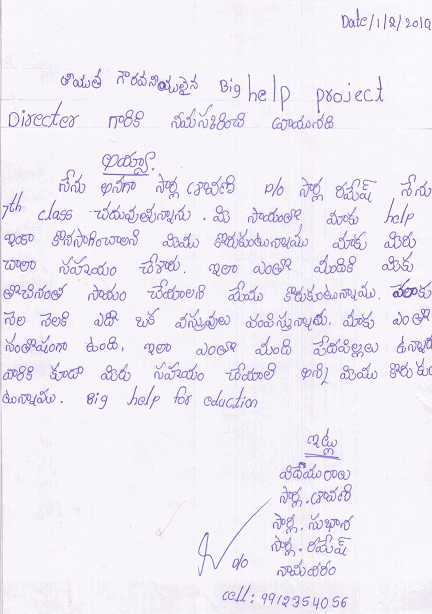 Date/1/2/2010
గౌరవనీయులైన Big help project
Directer గారికి నమస్కరించి వ్రాయునది
అయ్యా.
నేను అనగా సార్ల శ్రావణి D/o సార్ల రమేష్ నేను
7th class చదువుతున్నాను. మీ సాయంతో మాకు help
ఇంకా కొనసాగించాలని మేము కోరుకుంటున్నాము మాకు మీరు
చాలా సహాయం చేశారు. ఇలా ఎంతో మందికి మీకు
తోచినంత సాయం చేయాలని మేము కోరుకుంటున్నాము.
నెల నెలకి ఏదో ఒక వస్తువులు పంపిస్తున్నారు. మాకు ఎంతో
సంతోషంగా ఉంది. ఇలా ఎంతో మంది పేదపిల్లలు
వారికి కూడా మీరు సహయం చేయాలి అని మేము
టున్నాము. Big help for eduction
ఇట్లు
విదేయురాలు
సార్ల. శ్రావణి
సార్ల. సుభాన
సార్ల. రమేష్
D/o
cell: 9912354056